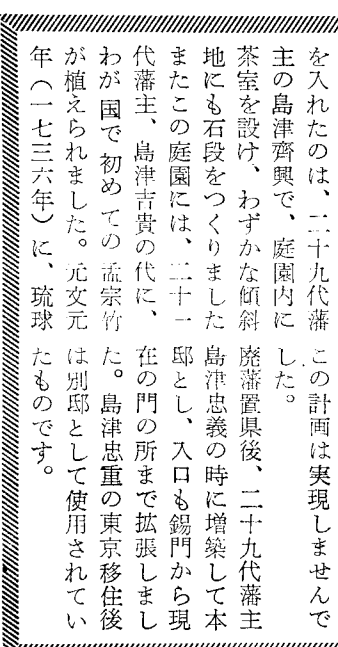 を入れたのは、二十九代藩
主の島津齊興で、庭園内に
茶室を設け、わずかな傾斜
地にも石段をつくりました
またこの庭園には、二十一
代藩主、島津吉貴の代に、
わが国で初めての孟宗竹
が植えられました。元文元
年(一七三六年)に、琉球
この計画は実現しませんで
した。
廃藩置県後、二十九代藩主
島津忠義の時に増築して本
邸とし、入口も錫門から現
在の門の所まで拡張しまし
た。島津忠重の東京移住後
は別邸として使用されてい
たものです。